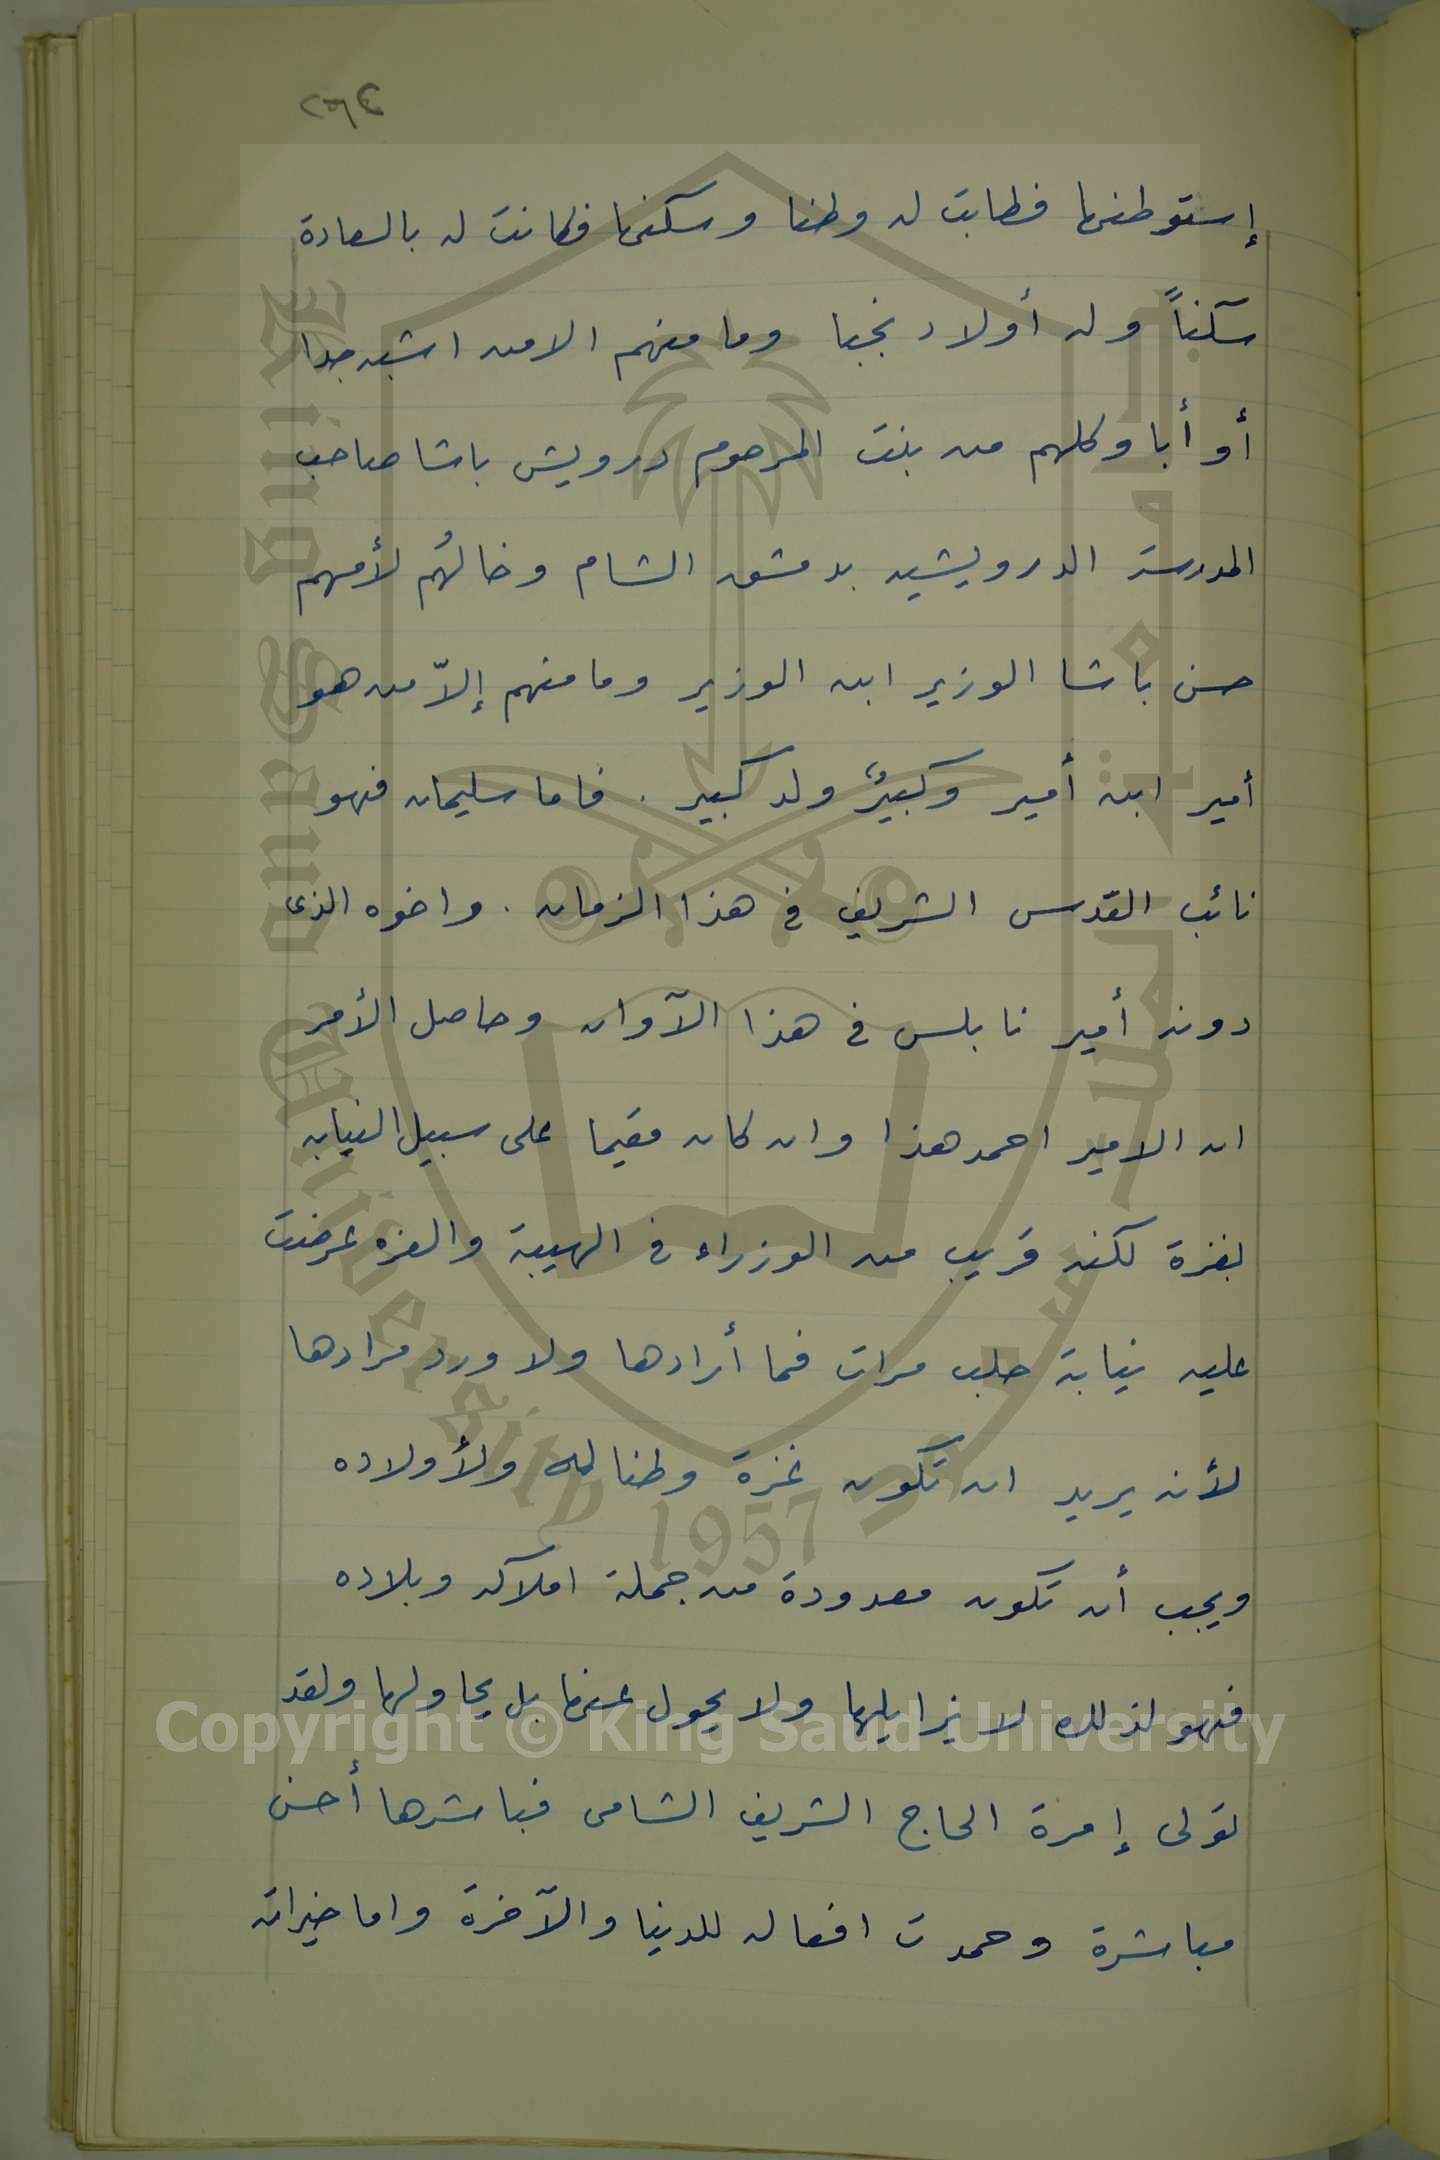 ٢٦٤
إستوطنها فطابت له وطنا وسكنها فكانت له بالسعادة
سكناً وله أولاد نجبا وما منهم الا من اشبه جدا
أو أبا وكلهم من بنت المرحوم درويش باشا صاحب
المدرسة الدرويشيه بدمشق الشام وخالهُم لأمهم
حسن باشا الوزير ابن الوزير وما منهم إلاّ من هو
أمير ابن أمير وكبيرٌ ولد كبير . فاما سليمان فهو
نائب القدس الشريف في هذا الزمان . واخوه الذى
دونه أمير نابلس في هذا الآوان وحاصل الأمر
ان الامير احمد هذا وان كان مقيما على سبيل النيابه
بغزة لكنه قريب من الوزراء في الهيبة والعزه عرضت
عليه نيابة حلب مرات فما أرادها ولا ورد مرادها
لأنه يريد ان تكون غزة وطنا له ولأولاده
ويجب أن تكون معدودة من جملة املاكه وبلاده
فهو لذلك لا يزايلها ولا يحول عنها بل يحاولها ولقد
تولى إمرة الحاج الشريف الشامى فباشرها أحسن
مباشرة وحمدت افعاله للدنيا والآخرة واما خيراته
جامعة الملك سعود
King Saud University 1957
Copyright © King Saud University